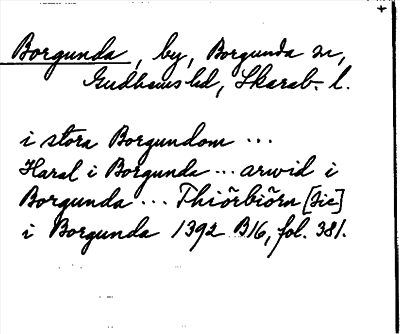 Borgunda, by, Borgunda sn,
Gudhems hd, Skarab. l.
i stora Borgundom ...
Haral i Borgunda ... arwid i
Borgunda ... Thiõrbiõrn [sic]
i Borgunda 1392 B16, fol. 381.